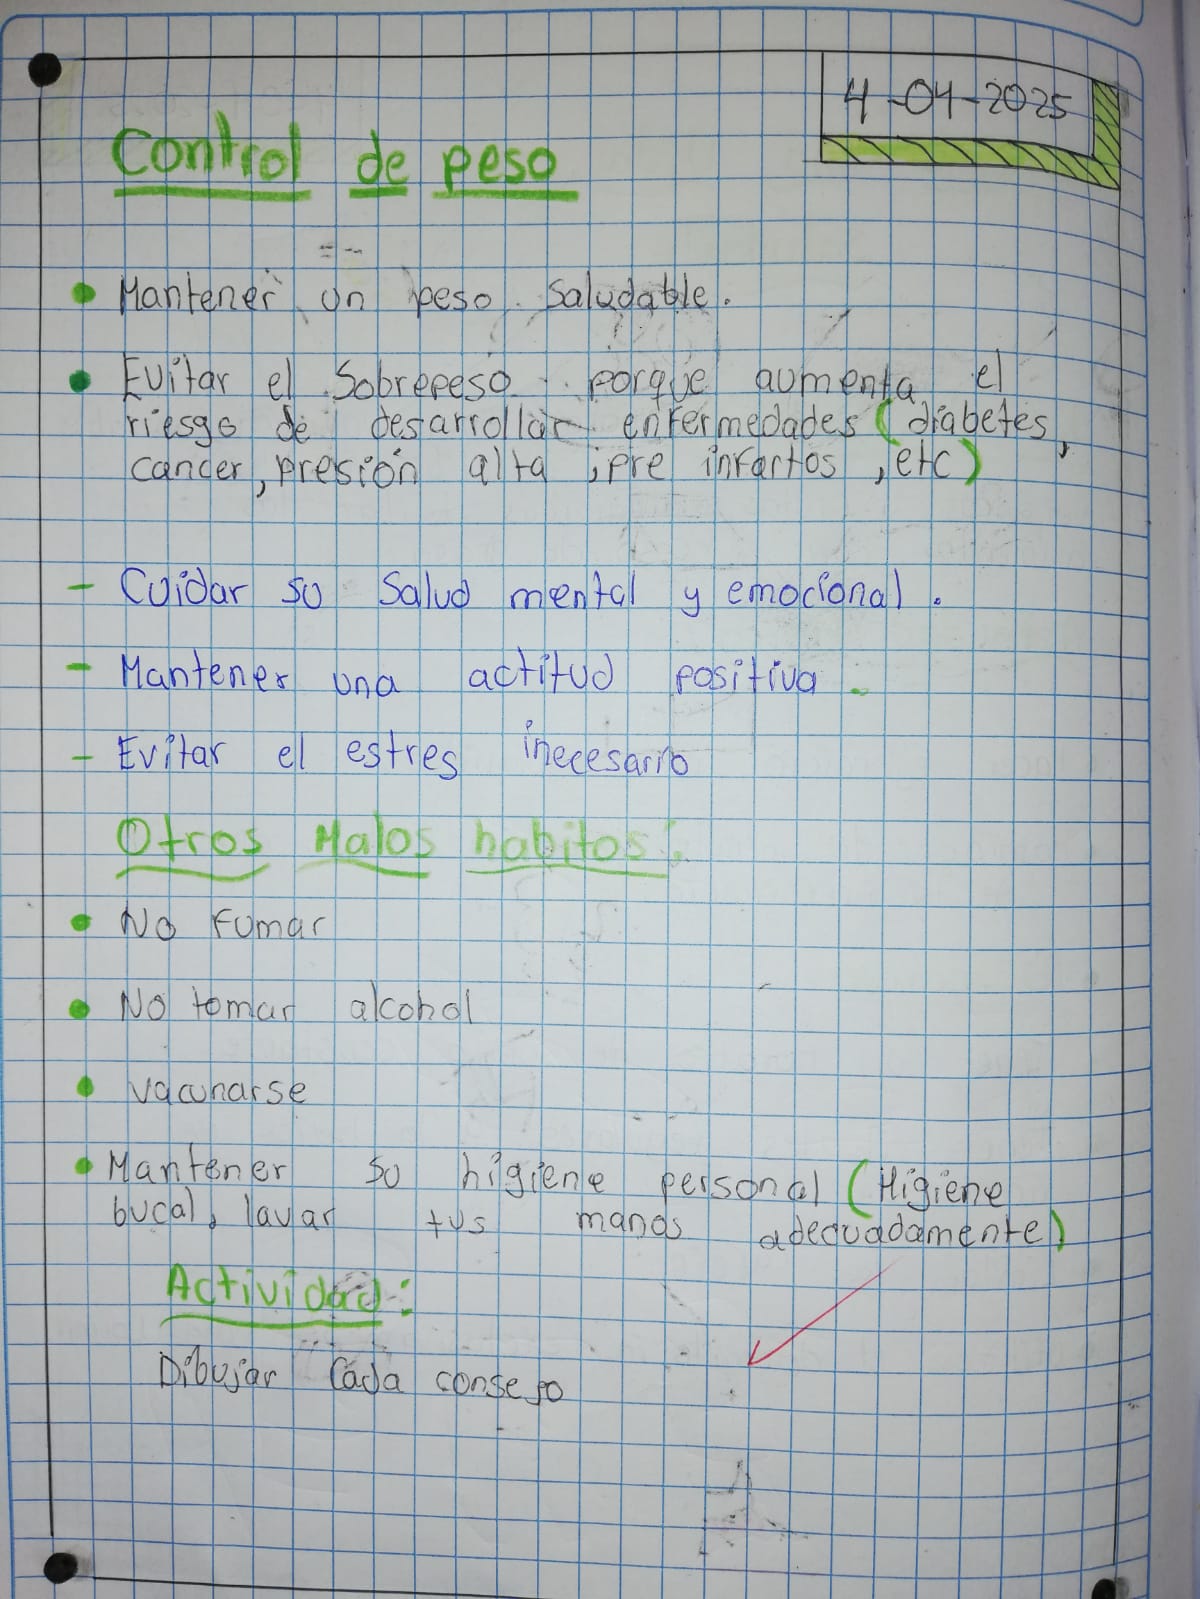 4-04-2025
Control de peso
• Mantener un peso saludable.
• Evitar el Sobrepeso porque aumenta el
riesgo de desarrollar enfermedades (diabetes,
cancer, presión alta, pre infartos, etc)
- Cuidar su Salud mental y emocional.
- Mantener una actitud positiva.
- Evitar el estres inecesario
Otros Malos habitos:
• No Fumar
• No tomar alcohol
• vacunarse
• Mantener su higiene personal (Higiene
bucal, lavar tus manos adecuadamente)
Actividad:
Dibujar Cada consejo